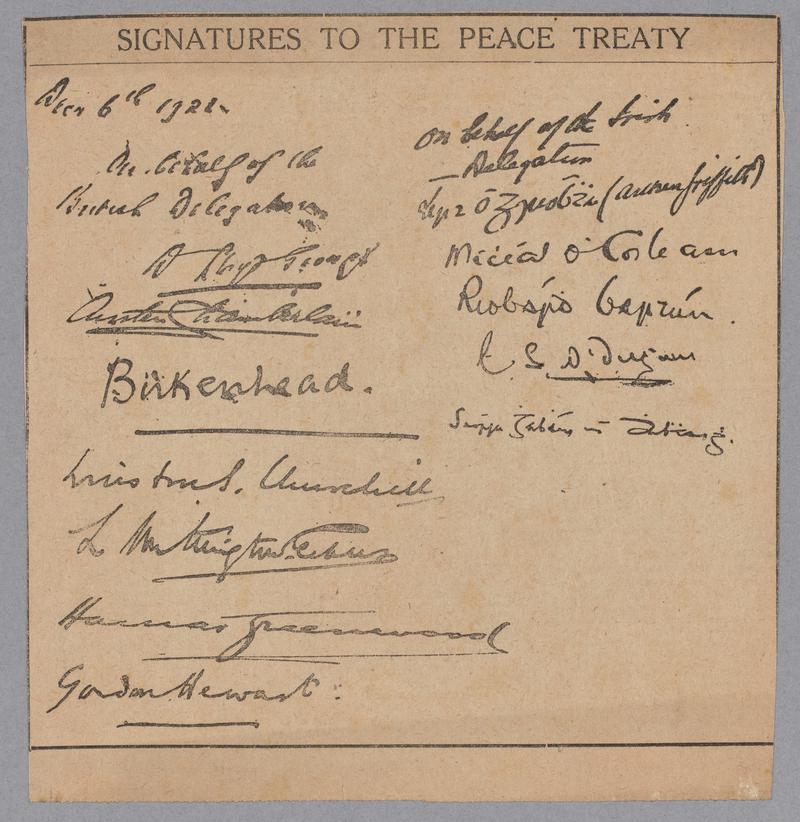 SIGNATURES TO THE PEACE TREATY
Decr 6th 1921.
On behalf of the
British Delegation
D Lloyd George
Austen Chamberlain
Birkenhead.
Winston S. Churchill
L Worthington-Evans
Hamar Greenwood
Gordon Hewart.
On behalf of the Irish
Delegation
Art Ó Gríobhtha (Arthur Griffith)
Micéál Ó Coileain
Riobárd Bartún
E. S. Ó Dugain
Seórsa Ghabháin uí Dhubhthaigh.